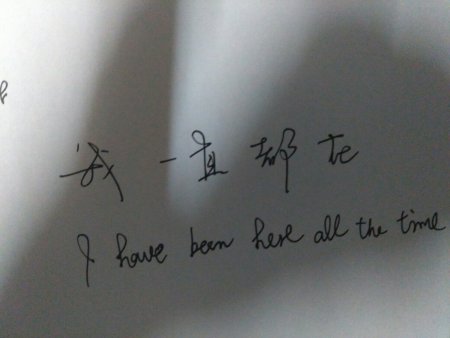 我一直都在
I have been here all the time